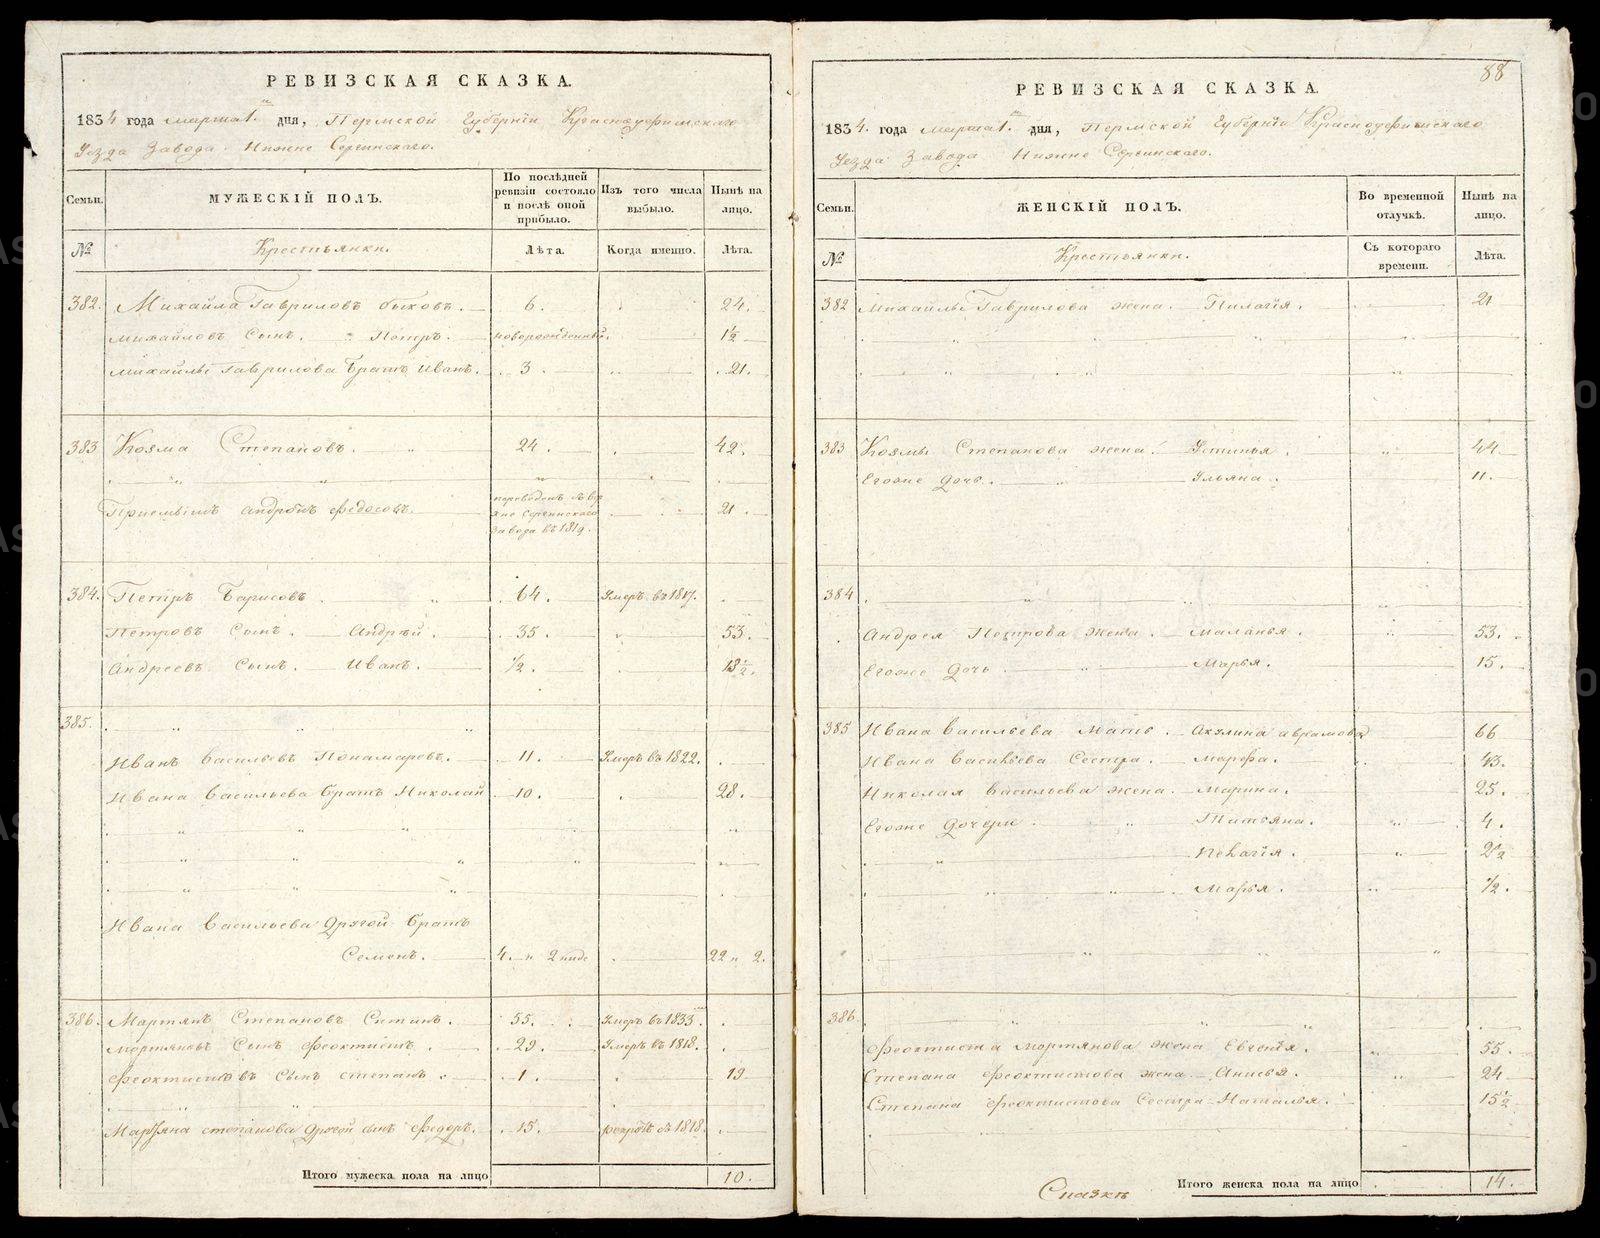 РЕВИЗСКАЯ СКАЗКА.
1834 года марта 1. го дня, Пермской Губернiи Красноуфимскаго
Уезда Завода Нижне Сергинскаго.
Семьи.
МУЖЕСКIЙ ПОЛЪ.
По послѣдней ревизiи состояло и послѣ оной прибыло.
Изъ того числа выбыло.
Нынѣ на лицо.
№
Крестьянки.
Лѣта.
Когда именно.
Лѣта.
382. Михайла Гавриловъ быковъ. 6. 24.
михайловъ Сынъ. Петръ. новорожденный. 1½
михайлы Гаврилова братъ Иванъ. 3. 21.
383 Козма Степановъ. 24. 42.
Приемышъ андронъ федосовъ. 21.
завода въ 1819.
384. Петръ Барисовъ 64. Умеръ въ 1817.
Петровъ Сынъ. Андрѣй. 35. 53.
Андреевъ Сынъ. Иванъ. ½. 18½.
385.
Иванъ Васильевъ Понамаревъ. 11. Умеръ въ 1822.
Ивана Васильева братъ Николай 10. 28.
Ивана Васильева Другой братъ
Семенъ. 4. 22 и 2.
386. Мартянъ Степановъ Ситинъ. 55. Умеръ въ 1833.
мартяновъ Сынъ феоктистъ. 29. Умеръ въ 1818.
феоктистовъ Сынъ степанъ. 1. 19
Мартяна степанова другой сынъ федоръ. 15. 1818.
Итого мужеска пола на лицо 10.
88
РЕВИЗСКАЯ СКАЗКА.
1834. года марта 1. го дня, Пермской Губернiи Красноуфимскаго
Уезда Завода Нижне Сергинскаго.
Семьи.
ЖЕНСКIЙ ПОЛЪ.
Во временной отлучкѣ.
Нынѣ на лицо.
№
Крестьянки.
Съ котораго времени.
Лѣта.
382 михайлы Гаврилова жена. Пилагiя. 21
383 Козмы Степанова жена. Устинья. 44
Егоже дочь. Ульяна. 11.
384
Андрея Петрова жена. маланья. 53.
Егоже дочь марья. 15.
385 Ивана Васильева мать. акулина аврамова 66
Ивана Васильева Сестра. марфа. 43.
Николая Васильева жена. марина. 25.
Егоже дочери Татьяна. 4.
Пелагiя. 2½
марья. ½.
386.
феоктиста мортянова жена Евгенiя. 55.
Степана феоктистова жена. Анисья. 24
Степана феоктистова Сестра Наталья. 15½
Итого женска пола на лицо 14.
Сказкѣ